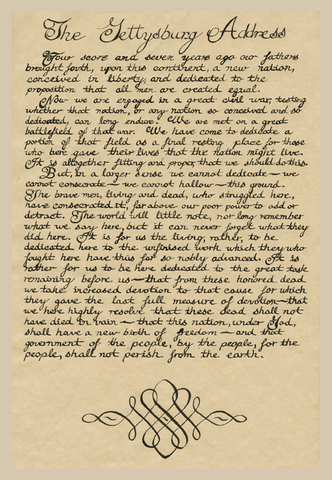 The Gettysburg Address
Four score and seven years ago our fathers
brought forth, upon this continent, a new nation,
conceived in liberty, and dedicated to the
proposition that all men are created equal.
Now we are engaged in a great civil war, testing
whether that nation, or any nation so conceived and so
dedicated, can long endure. We are met on a great
battlefield of that war. We have come to dedicate a
portion of that field as a final resting place for those
who here gave their lives that the nation might live.
It is altogether fitting and proper, that we should do this.
But, in a larger sense we cannot dedicate — we
cannot consecrate — we cannot hallow — this ground.
The brave men, living and dead, who struggled here,
have consecrated it, far above our poor power to add or
detract. The world will little note, nor long remember
what we say here, but it can never forget what they
did here. It is for us the living, rather, to be
dedicated here to the unfinished work which they who
fought here have thus far so nobly advanced. It is
rather for us to be here dedicated to the great task
remaining before us — that from these honored dead
we take increased devotion to that cause for which
they gave the last full measure of devotion — that
we here highly resolve that these dead shall not
have died in vain — that this nation, under God,
shall have a new birth of freedom — and that
government of the people, by the people, for the
people, shall not perish from the earth.